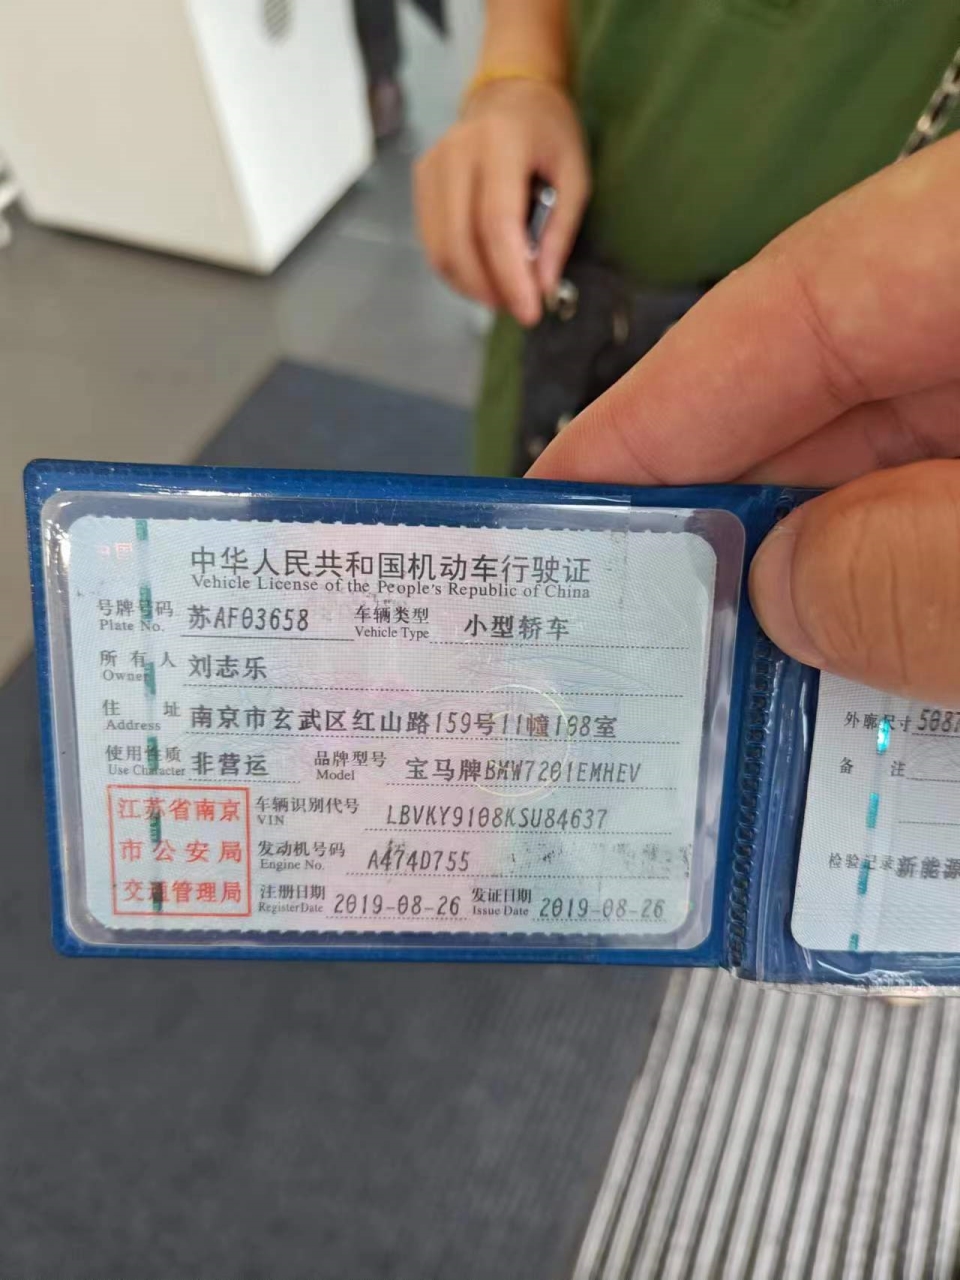 中华人民共和国机动车行驶证
Vehicle License of the People's Republic of China
号牌号码 苏AF03658 车辆类型 小型轿车
Plate No. Vehicle Type
所有人 刘志乐
Owner
住址 南京市玄武区红山路159号11幢108室
Address
使用性质 非营运 品牌型号 宝马牌BMW7201EMHEV
Use Character Model
江苏省南京
市公安局
交通管理局
车辆识别代号 LBVKY9108KSU84637
VIN
发动机号码 A474D755
Engine No.
注册日期 2019-08-26 发证日期 2019-08-26
Register Date Issue Date
外廓尺寸 5087
备注
检验记录 新能源